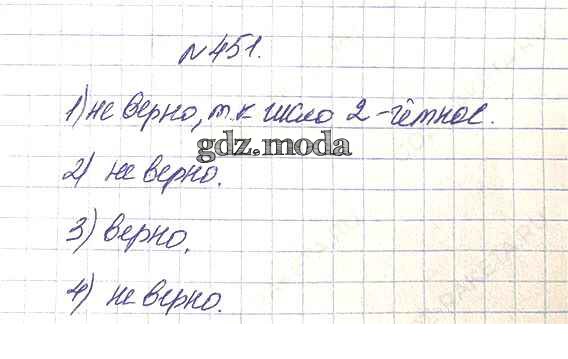 №451.
1) не верно, т.к число 2 - чётное.
gdz.moda
2) не верно.
3) верно.
4) не верно.